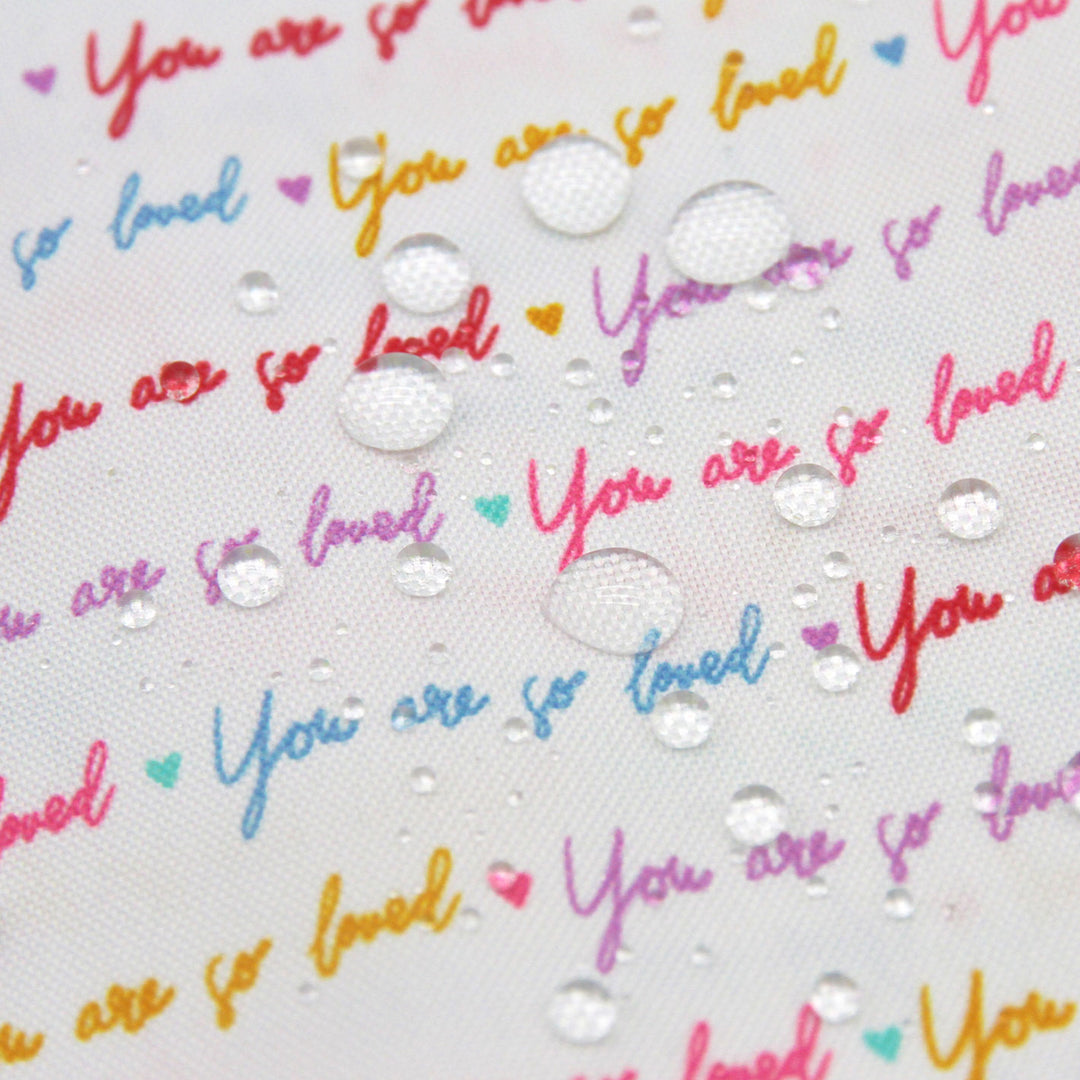 You are so loved
so loved You are so loved You
You are so loved You are so loved
are so loved You are so loved
loved You are so loved You
are so loved You are so loved
loved You